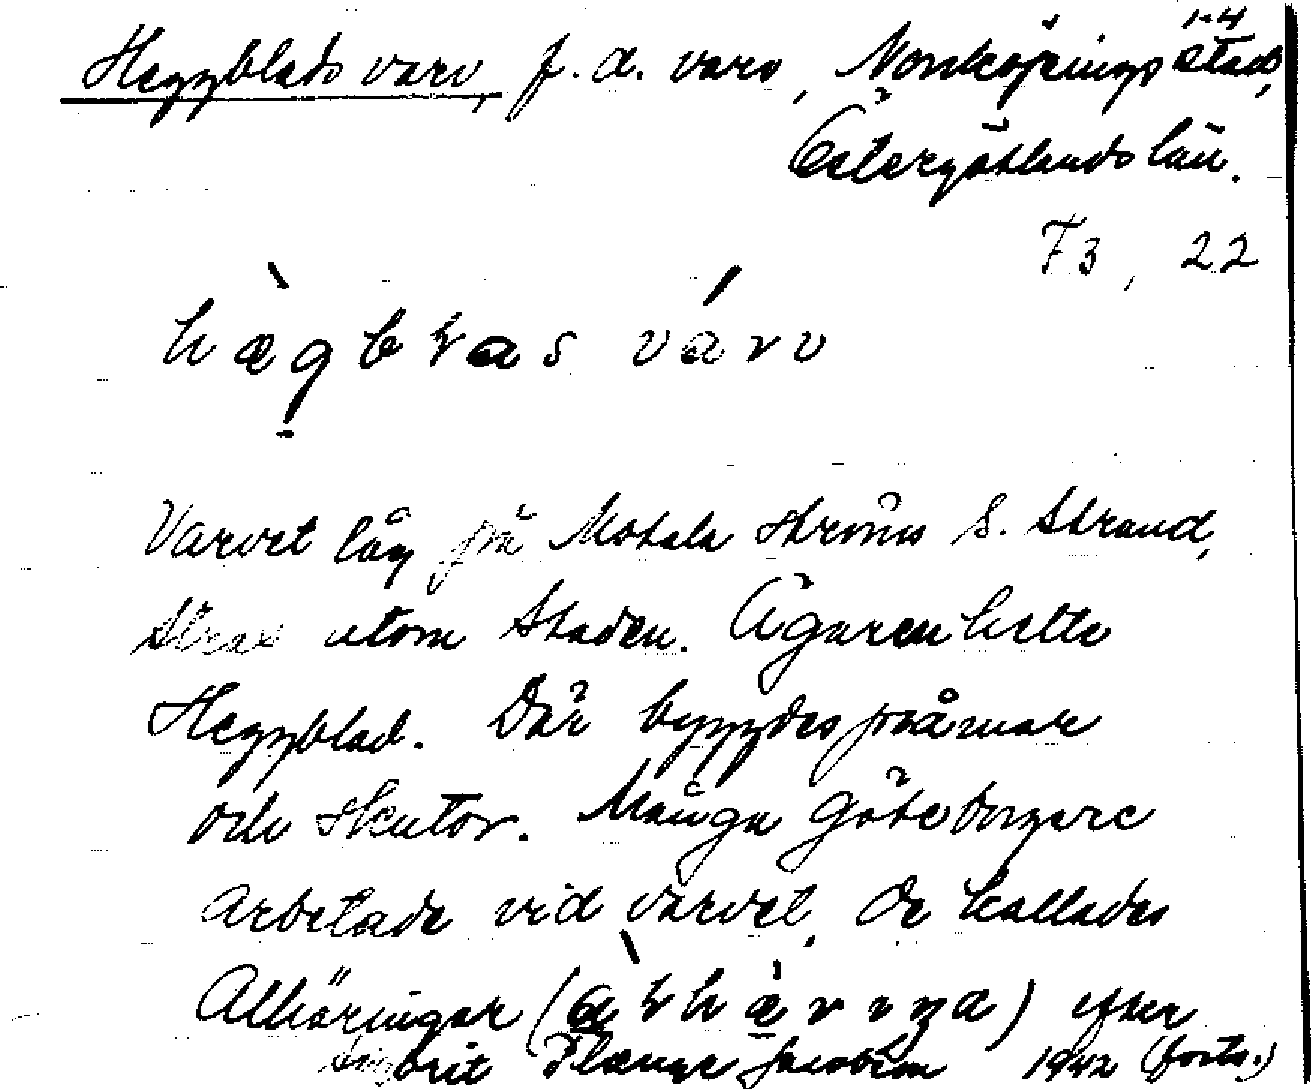 1-4
Heggblads varv, f.d. varv, Norrköpings stad,
Östergötlands län.
F3, 22
hægbłas várv
Varvet låg på Motala ströms S. Strand,
strax utom Staden. Ägaren hette
Heggblad. Där byggdes pråmar
och skutor. Många göteborgare
arbetade vid varvet. De kallades
Alhäringar ( ) efter
Jacobson 1942 (forts.)